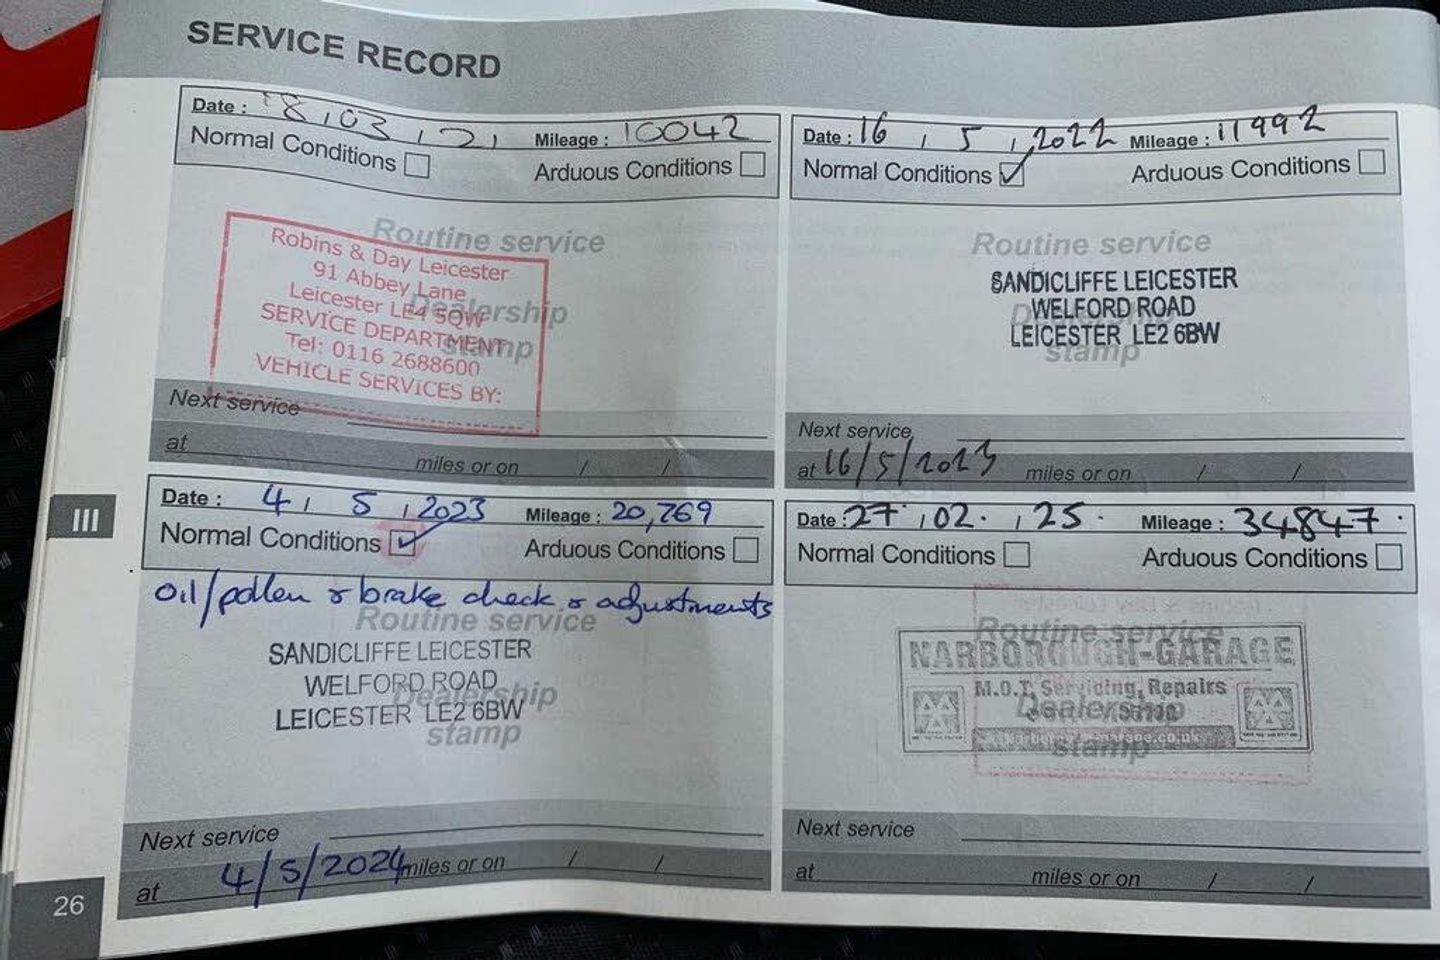 SERVICE RECORD
Date : 18 , 03 , 21 Mileage : 10042
Normal Conditions Arduous Conditions
Routine service
Dealership
stamp
Robins & Day Leicester
91 Abbey Lane
Leicester LE4 5QW
SERVICE DEPARTMENT
Tel: 0116 2688600
VEHICLE SERVICES BY:
Next service
at miles or on / /
Date : 16 , 5 , 2022 Mileage : 11992
Normal Conditions ✓ Arduous Conditions
Routine service
SANDICLIFFE LEICESTER
WELFORD ROAD
LEICESTER LE2 6BW
stamp
Next service
at 16/5/2023 miles or on / /
III
Date : 4 , 5 , 2023 Mileage : 20,769
Normal Conditions ✓ Arduous Conditions
oil/pollen & brake check & adjustments
Routine service
SANDICLIFFE LEICESTER
WELFORD ROAD
Dealership
LEICESTER LE2 6BW
stamp
Next service
at 4/5/2024 miles or on / /
Date : 27 . , 02 . , 25 . Mileage : 34847 .
Normal Conditions Arduous Conditions
Routine service
NARBOROUGH-GARAGE
M.O.T, Servicing, Repairs
Dealership
stamp
Next service
at miles or on / /
26